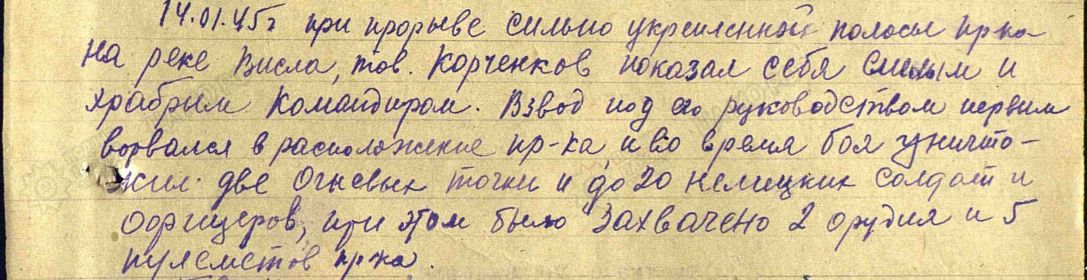 14.01.45г при прорыве сильно укрепленной полосы пр-ка
на реке Висла, тов. Корченков показал себя смелым и
храбрым командиром. Взвод под его руководством первым
ворвался в расположение пр-ка, и во время боя уничто-
жил две огневых точки и до 20 немецких солдат и
офицеров, при этом было захвачено 2 орудия и 5
пулеметов пр-ка.